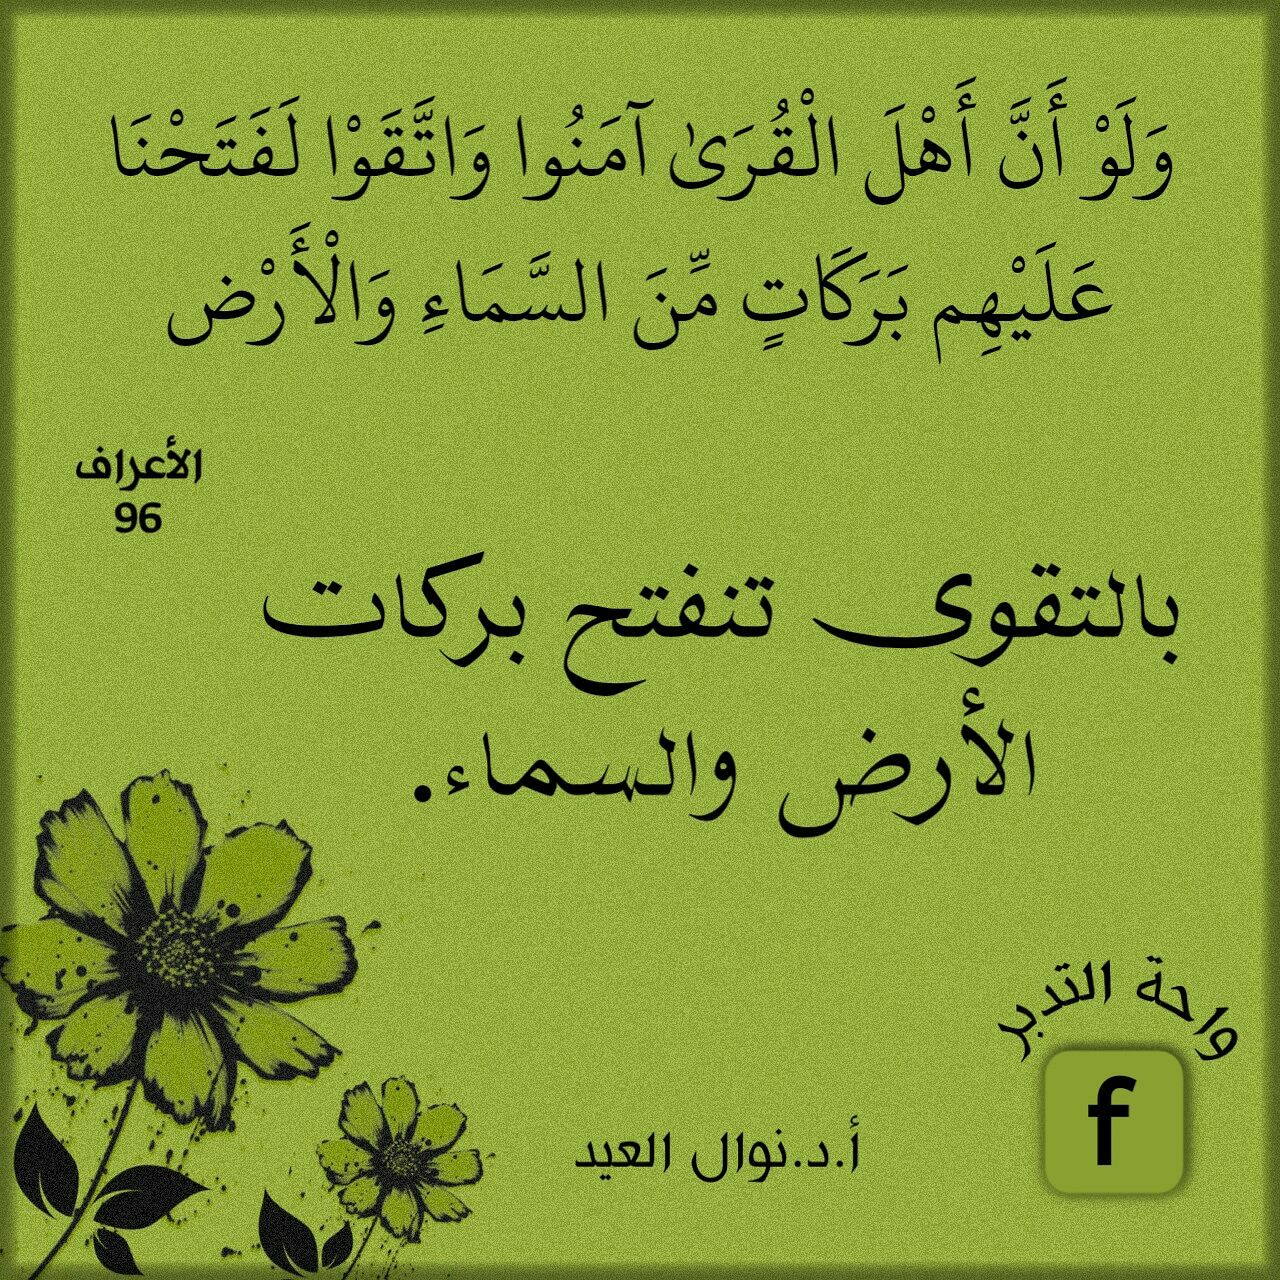 وَلَوْ أَنَّ أَهْلَ الْقُرَىٰ آمَنُوا وَاتَّقَوْا لَفَتَحْنَا
عَلَيْهِم بَرَكَاتٍ مِّنَ السَّمَاءِ وَالْأَرْض
الأعراف
96
بالتقوى تنفتح بركات
الأرض والسماء.
واحة التدبر
f
أ.د.نوال العيد